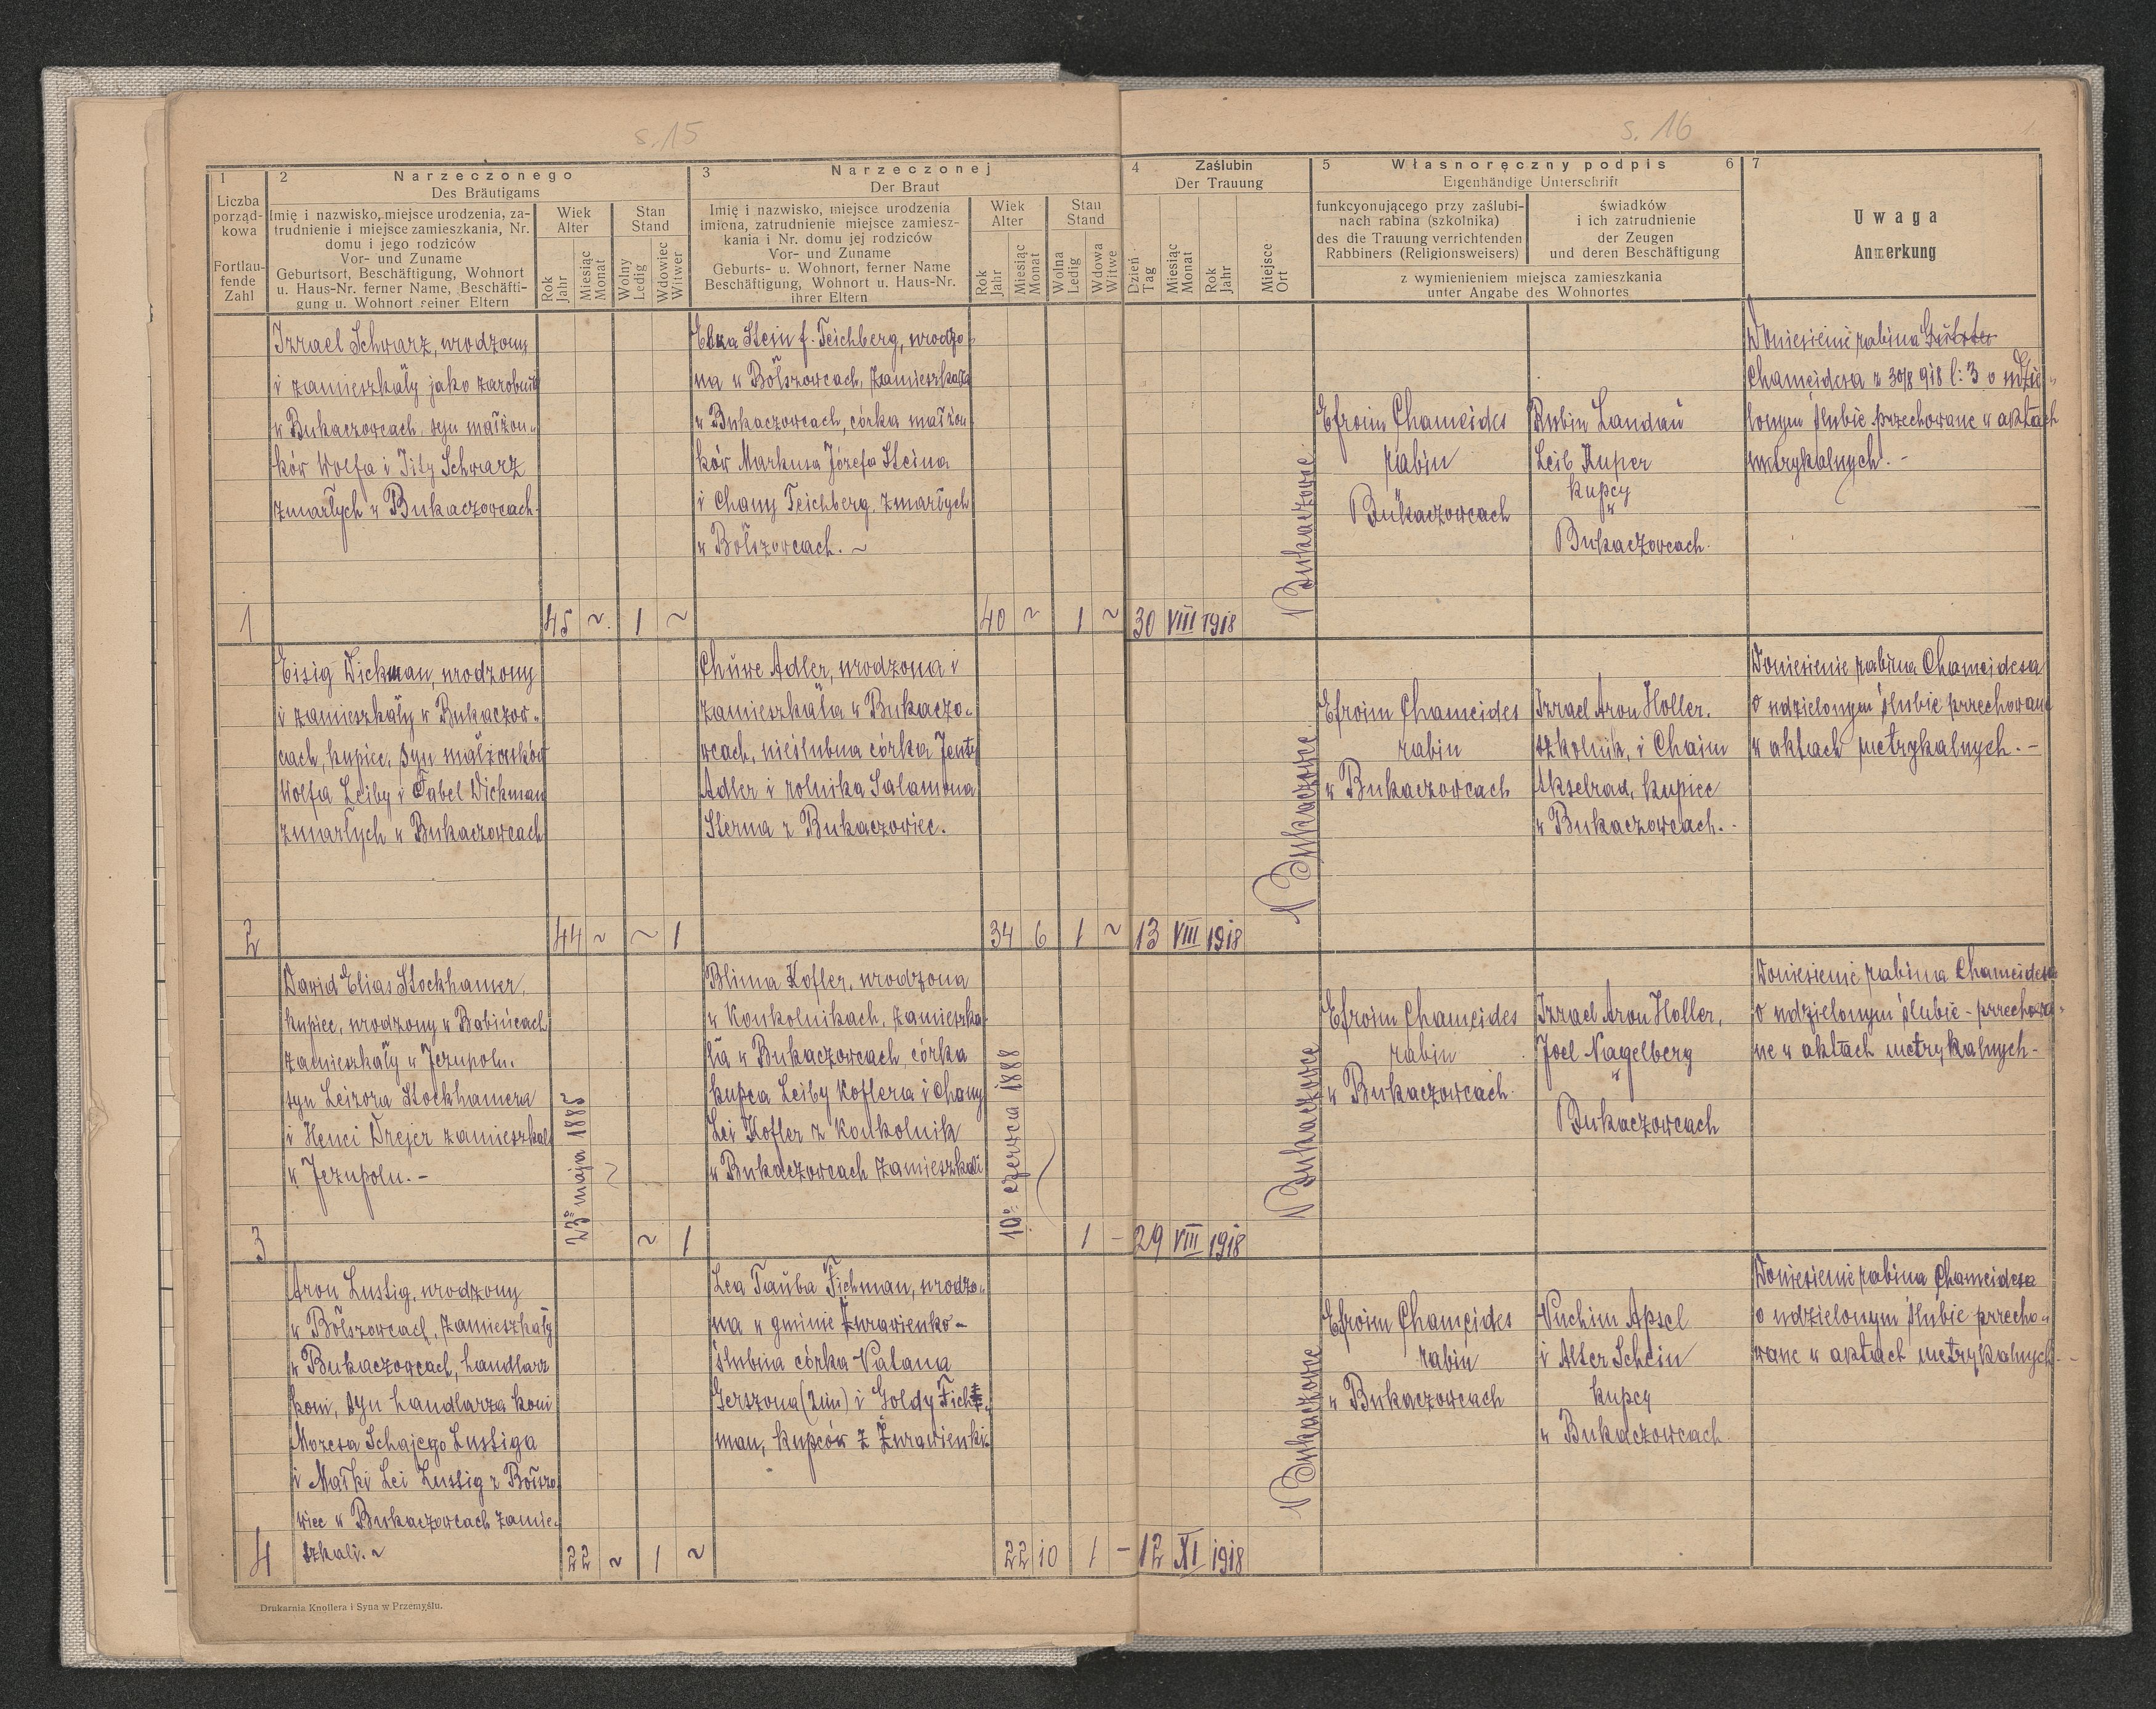 s. 15
s. 16
1
Liczba
porząd-
kowa
Fortlau-
fende
Zahl
2
Narzeczonego
Des Bräutigams
Imię i nazwisko, miejsce urodzenia, za-
trudnienie i miejsce zamieszkania, Nr.
domu i jego rodziców
Vor- und Zuname
Geburtsort, Beschäftigung, Wohnort
u. Haus-Nr. ferner Name, Beschäfti-
gung u. Wohnort seiner Eltern
Wiek
Alter
Rok
Jahr
Miesiąc
Monat
Stan
Stand
Wolny
Ledig
Wdowiec
Witwer
3
Narzeczonej
Der Braut
Imię i nazwisko, miejsce urodzenia
imiona, zatrudnienie miejsce zamiesz-
kania i Nr. domu jej rodziców
Vor- und Zuname
Geburts- u. Wohnort, ferner Name
Beschäftigung, Wohnort u. Haus-Nr.
ihrer Eltern
Wiek
Alter
Rok
Jahr
Miesiąc
Monat
Stan
Stand
Wolna
Ledig
Wdowa
Witwe
4
Zaślubin
Der Trauung
Dzień
Tag
Miesiąc
Monat
Rok
Jahr
Miejsce
Ort
5
Własnoręczny podpis
6
Eigenhändige Unterschrift
funkcyonującego przy zaślubi-
nach rabina (szkolnika)
des die Trauung verrichtenden
Rabbiners (Religionsweisers)
świadków
i ich zatrudnienie
der Zeugen
und deren Beschäftigung
z wymienieniem miejsca zamieszkania
unter Angabe des Wohnortes
7
Uwaga
Anmerkung
1
Izrael Schwarz, urodzony
i zamieszkały jako zarobnik
w Bukaczowcach, syn małżon-
ków Wolfa i Tity Schwarz
zmarłych w Bukaczowcach.
45 ~ 1 ~
Elka Stein f. Teichberg, urodzo
na w Bołszowcach, zamieszkała
w Bukaczowcach, córka małżon
ków Markusa Józefa Steina
i Chany Teichberg, zmarłych
w Bołszowcach. ~
40 ~ 1 ~
30 VIII 1918
Bukaczowce
Efroim Chameides
rabin
Bukaczowcach
Rubin Landau
Leib Kuper
kupcy
w
Bukaczowcach.
Doniesienie rabina
Chameidesa z 30/8 918 l: 3 o udzie-
lonym ślubie przechowane w aktach
metrykalnych. -
2
Eisig Dickman, urodzony
i zamieszkały w Bukaczow-
cach, kupiec, syn małżonków
Wolfa Leiby i Tabel Dickman
zmarłych w Bukaczowcach
44 ~ ~ 1
Chuwe Adler, urodzona i
zamieszkała w Bukaczo-
wcach, nieślubna córka Jenty
Adler i rolnika Salamona
Sterna z Bukaczowiec.
34 6 1 ~
13 VIII 1918
Bukaczowce
Efroim Chameides
rabin
w Bukaczowcach
Izrael Aron Holler.
szkolnik, i Chaim
Akselrad, kupiec
w Bukaczowcach. -
Doniesienie rabina Chameidesa
o udzielonym ślubie przechowane
w aktach metrykalnych. -
3
Dawid Elias Stockhamer,
kupiec, urodzony w Babińcach
zamieszkały w Jezupolu.
syn Leizora Stockhamera
i Henci Drejer zamieszkali
w Jezupolu. -
23o maja 1885
~ 1
Blima Kofler, urodzona
w Konkolnikach, zamieszka
ła w Bukaczowcach, córka
kupca Leiby Koflera i Chany
Lei Kofler z Konkolnik
w Bukaczowcach zamieszkali
10o czerwca 1888
1 -
29 VIII 1918
Bukaczowce
Efroim Chameides
rabin
w Bukaczowcach.
Izrael Aron Holler,
Joel Nagelberg
w
Bukaczowcach
Doniesienie rabina Chameidesa
o udzielonym ślubie - przechowa-
ne w aktach metrykalnych -
4
Aron Lustig, urodzony
w Bołszowcach, zamieszkały
w Bukaczowcach, handlarz
koni, syn handlarza koni
Mozesa Schajego Lustiga
i Małki Lei Lustig z Bołszo
wiec w Bukaczowcach zamie-
szkali. ~
22 ~ 1 ~
Lea Tauba Fichman, urodzo-
na w gminie Żurawienko -
ślubna córka Natana
Gerszona (2im) i Goldy Fich-
man, kupców z Żurawienki.
22 10 1 -
12 XI 1918
Bukaczowce
Efroim Chameides
rabin
w Bukaczowcach
Nuchim Apsel
i Alter Schein
kupcy
w Bukaczowcach
Doniesienie rabina Chameidesa
o udzielonym ślubie przecho-
wane w aktach metrykalnych. -
Drukarnia Knollera i Syna w Przemyślu.